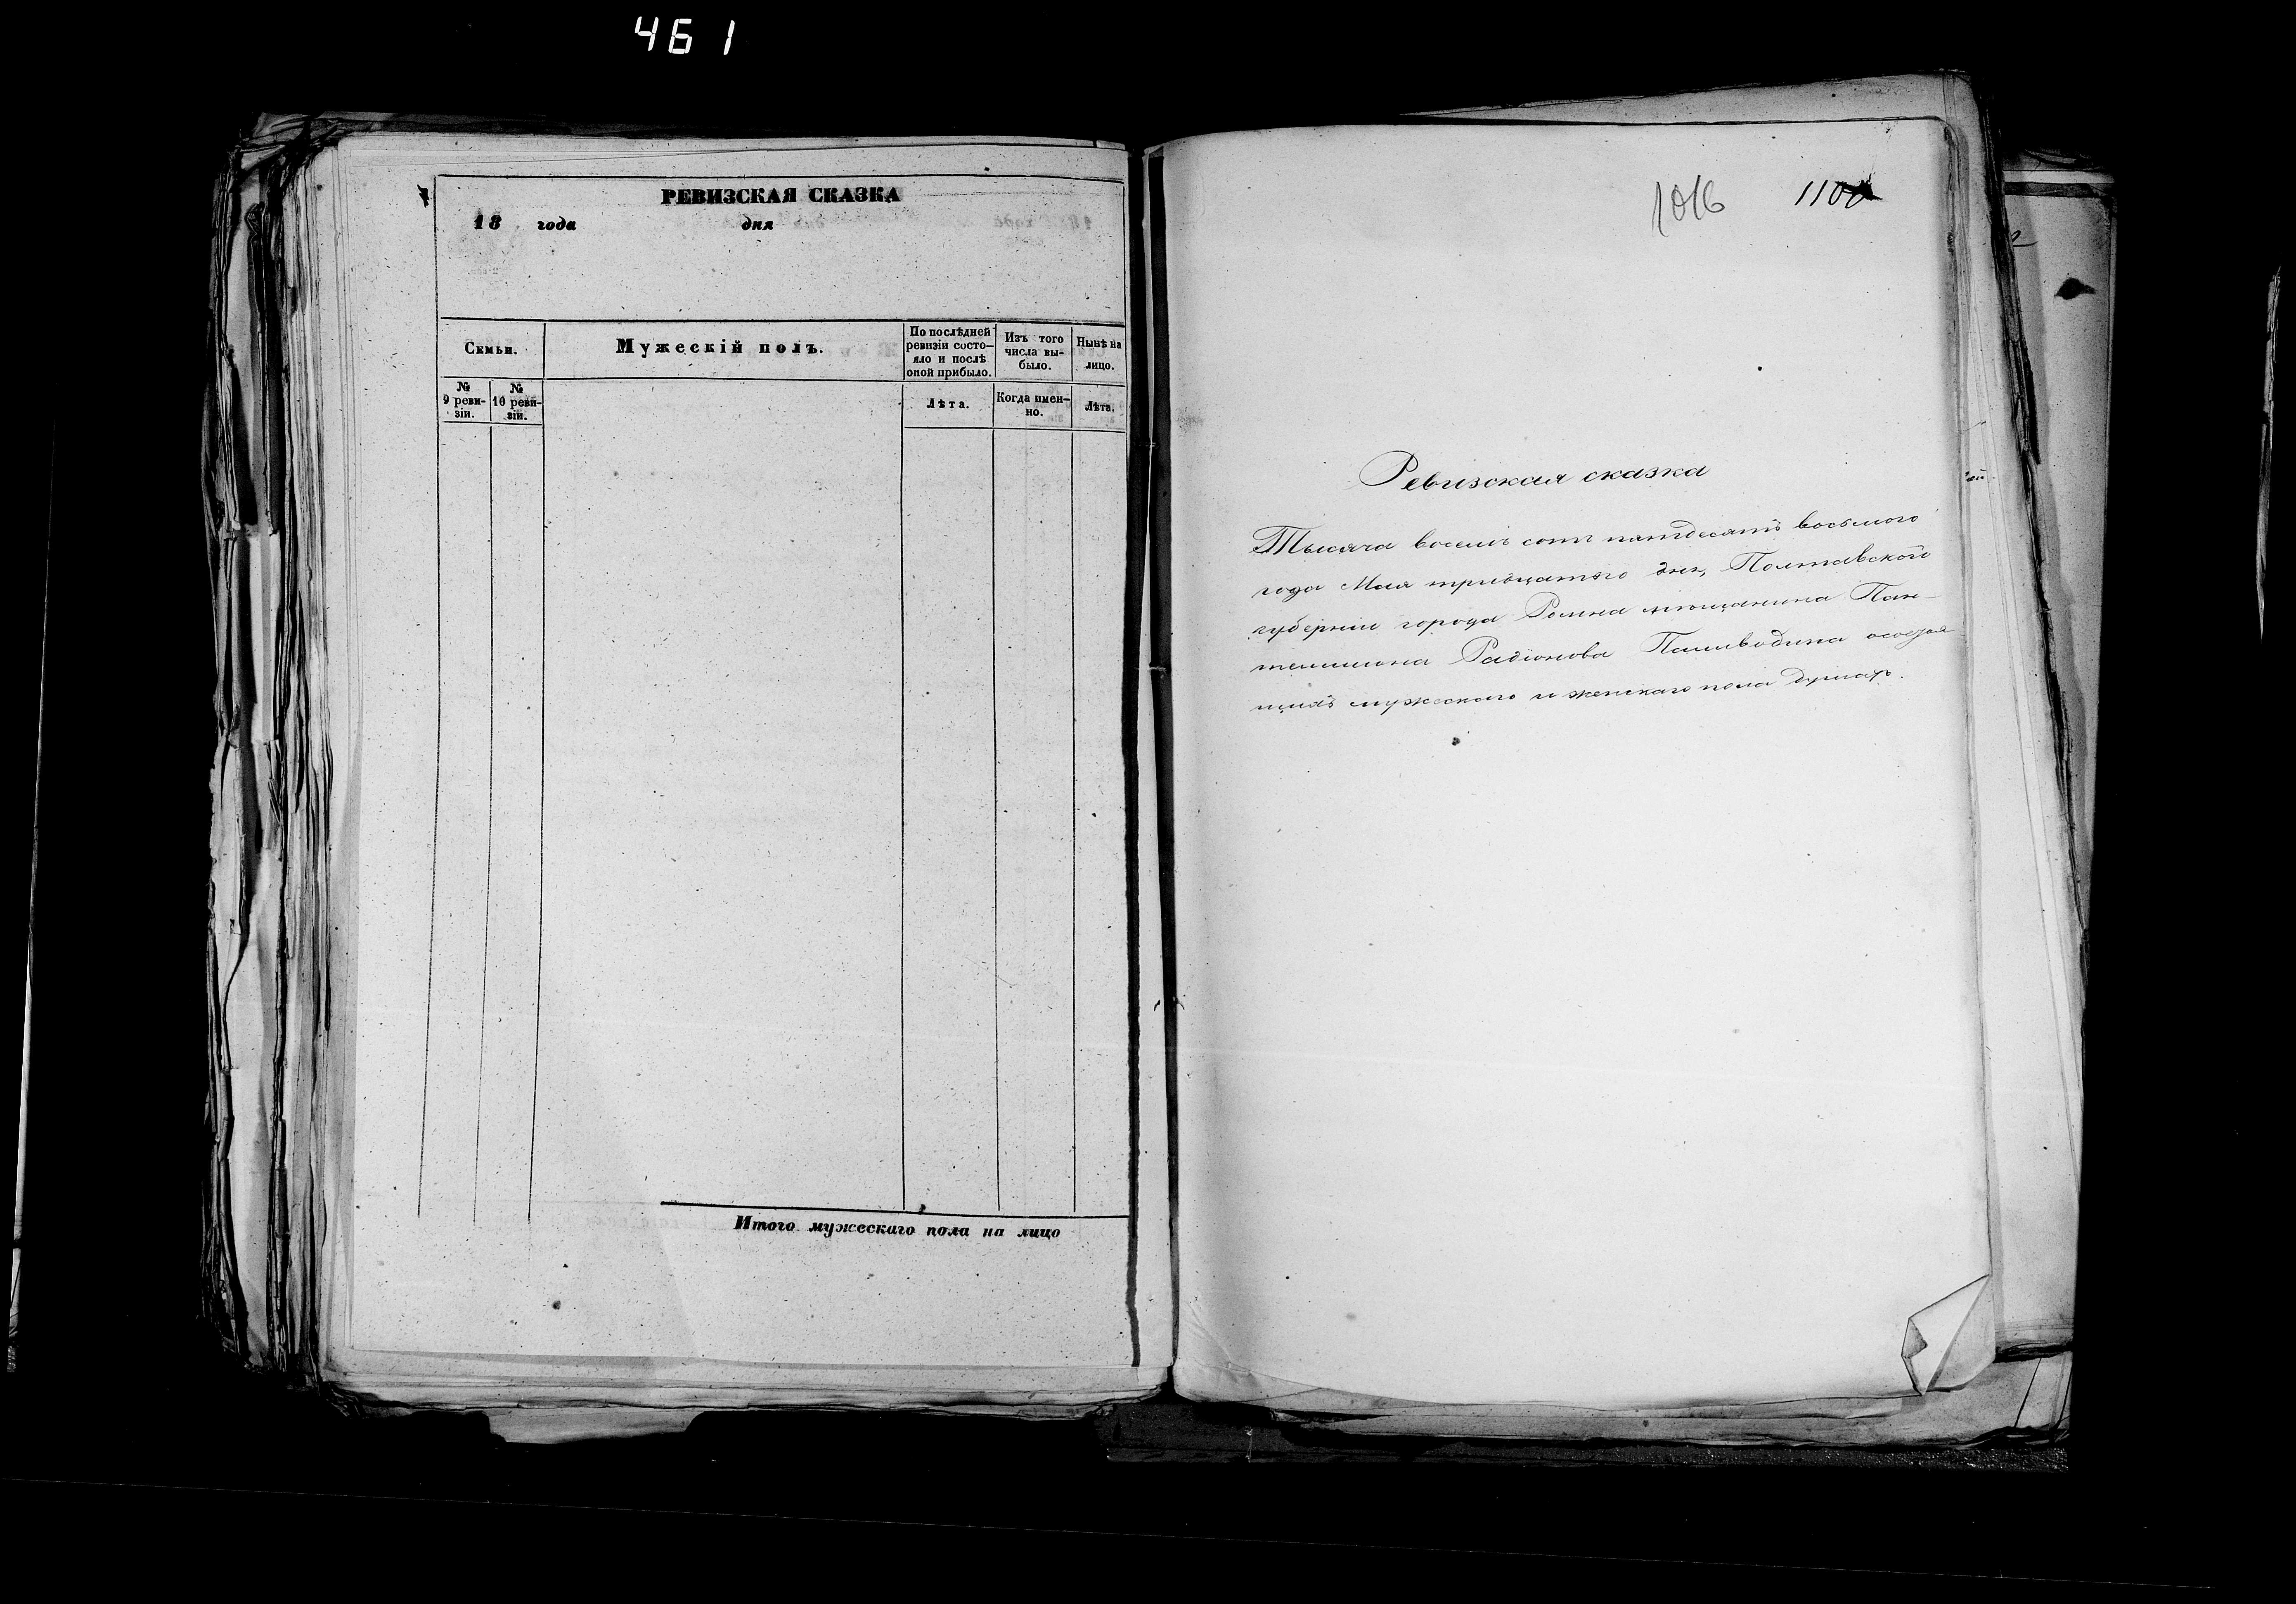 461
РЕВИЗСКАЯ СКАЗКА
18 года дня
Семьи.
Мужескій полъ.
По послѣдней ревизіи состо-яло и послѣ оной прибыло.
Изъ того числа вы-было.
Нынѣ на лицо.
№ 9 реви-зіи.
№ 10 реви-зіи.
Лѣта.
Когда имен-но.
Лѣта.
Итого мужескаго пола на лицо
1016 110
Ревизская сказка
Тысяча восемь сотъ пятдесятъ восьмого
года Мая тридцатого дня, Полтавской
губерніи города Ромна мѣщанина Пан-
телимона Радіонова Паливодина о состоя
щихъ мужескаго и женскаго пола душахъ.